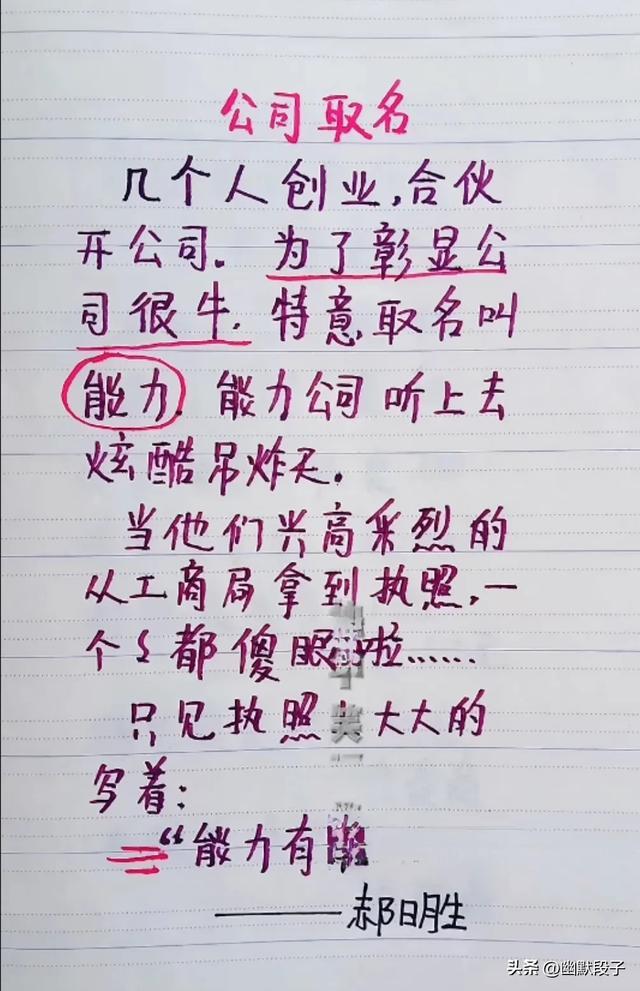 公司取名
几个人创业,合伙
开公司.为了彰显公
司很牛.特意取名叫
能力.能力公司听上去
炫酷吊炸天.
当他们兴高采烈的
从工商局拿到执照,一
个々都傻眼啦……
只见执照大大的
写着:
“能力有
——郝日胜
头条 @幽默段子